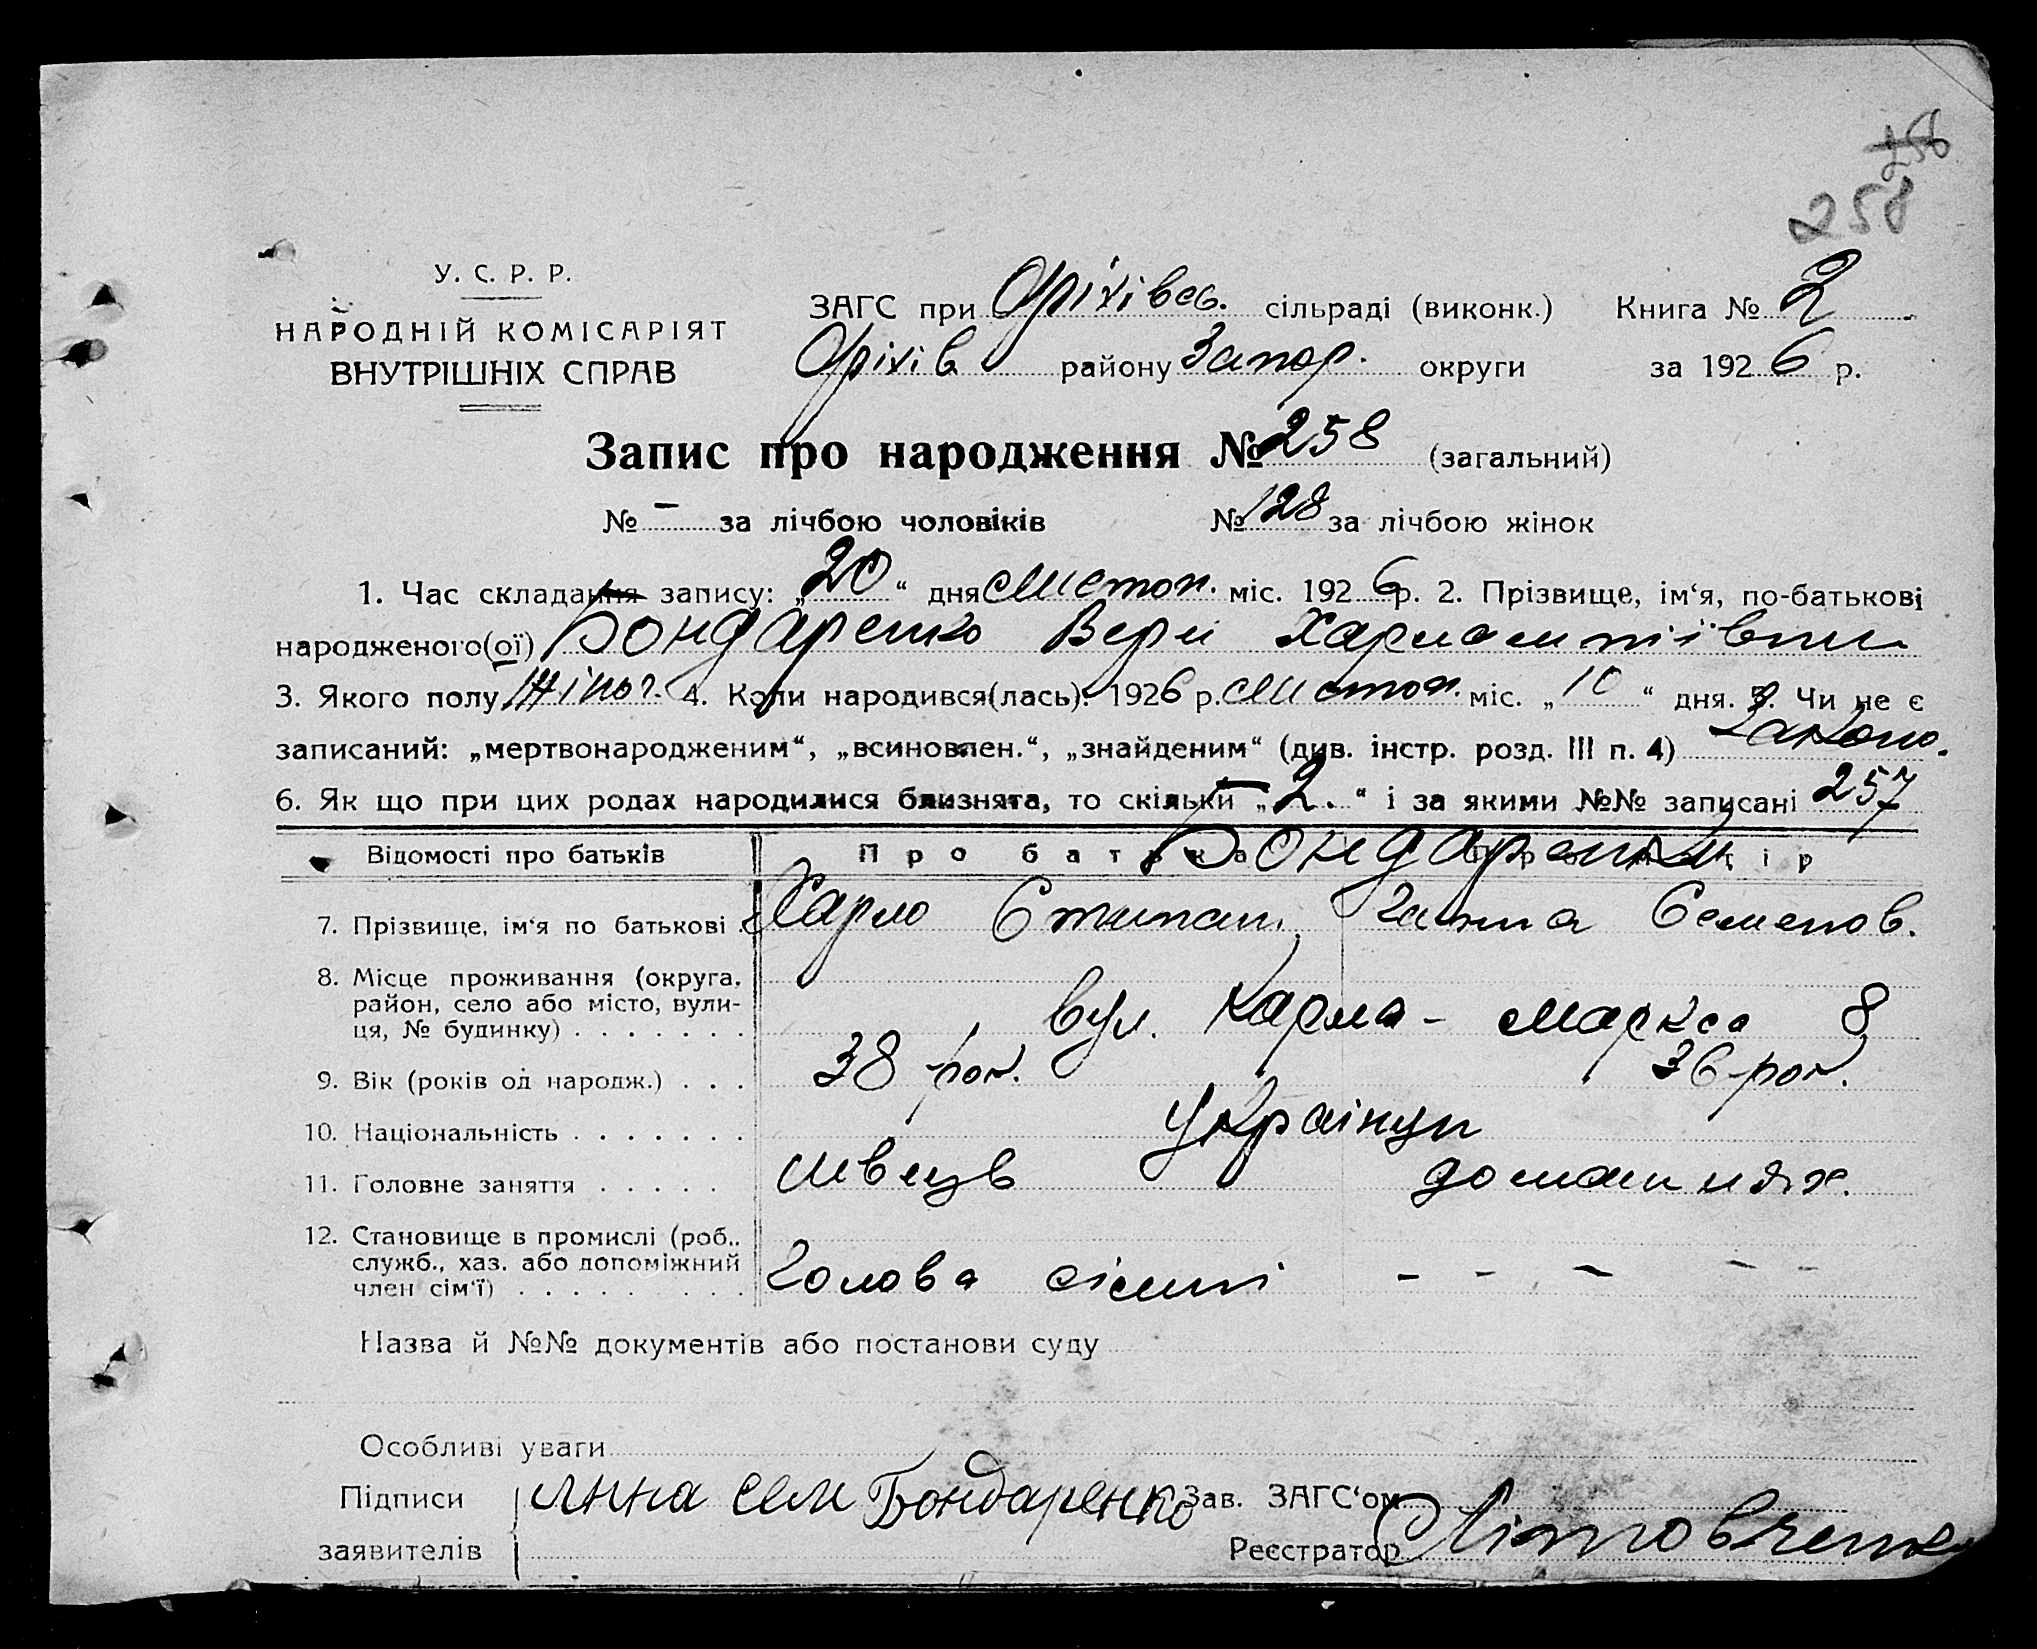 256
258
У. С. Р. Р.
НАРОДНІЙ КОМІСАРІЯТ
ВНУТРІШНІХ СПРАВ
ЗАГС при Оріхівсь. сільраді (виконк.) Книга № 2
Оріхів району Запор. округи за 1926 р.
Запис про народження № 258 (загальний)
№ – за лічбою чоловіків № 128 за лічбою жінок
1. Час складання запису: „20“ дня листоп. міс. 1926 р. 2. Прізвище, ім‘я, по-батькові
народженого(ої) Бондаренко Вери Харлампіївни
3. Якого полу жіноч. 4. Коли народився(лась): 1926 р. листоп. міс. „10“ дня. 5. Чи не є
записаний: „мертвонародженим“, „всиновлен.“, „знайденим“ (див. інстр. розд. III п. 4) законо.
6. Як що при цих родах народилися близнята, то скільки „2.“ і за якими №№ записані 257
Відомості про батьків Про батька Про матір
Бондаренки
7. Прізвище, ім‘я по батькові Харло Степан. Ганна Семенов.
8. Місце проживання (округа,
район, село або місто, вули-
ця, № будинку) . . . . . . . вул. Карла-Маркса 8
9. Вік (років од народж.) . . . 38 рок. 36 рок.
10. Національність . . . . . . . Українци
11. Головне заняття . . . . . швець домашнях.
12. Становище в промислі (роб.,
служб., хаз. або допоміжний
член сім‘ї) . . . . . . . . . Голова сімпі – – – – –
Назва й №№ документів або постанови суду
Особливі уваги
Підписи Анна Сем Бондаренко Зав. ЗАГС‘ом
заявителів Реєстратор